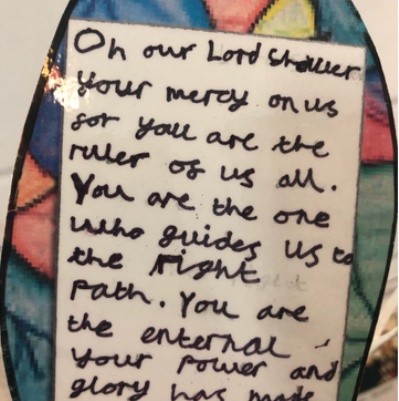 Oh our Lord Shower
your mercy on us
for you are the
ruler of us all.
You are the one
who guides us to
the right
path. You are
the enternal,
your power and
glory has made